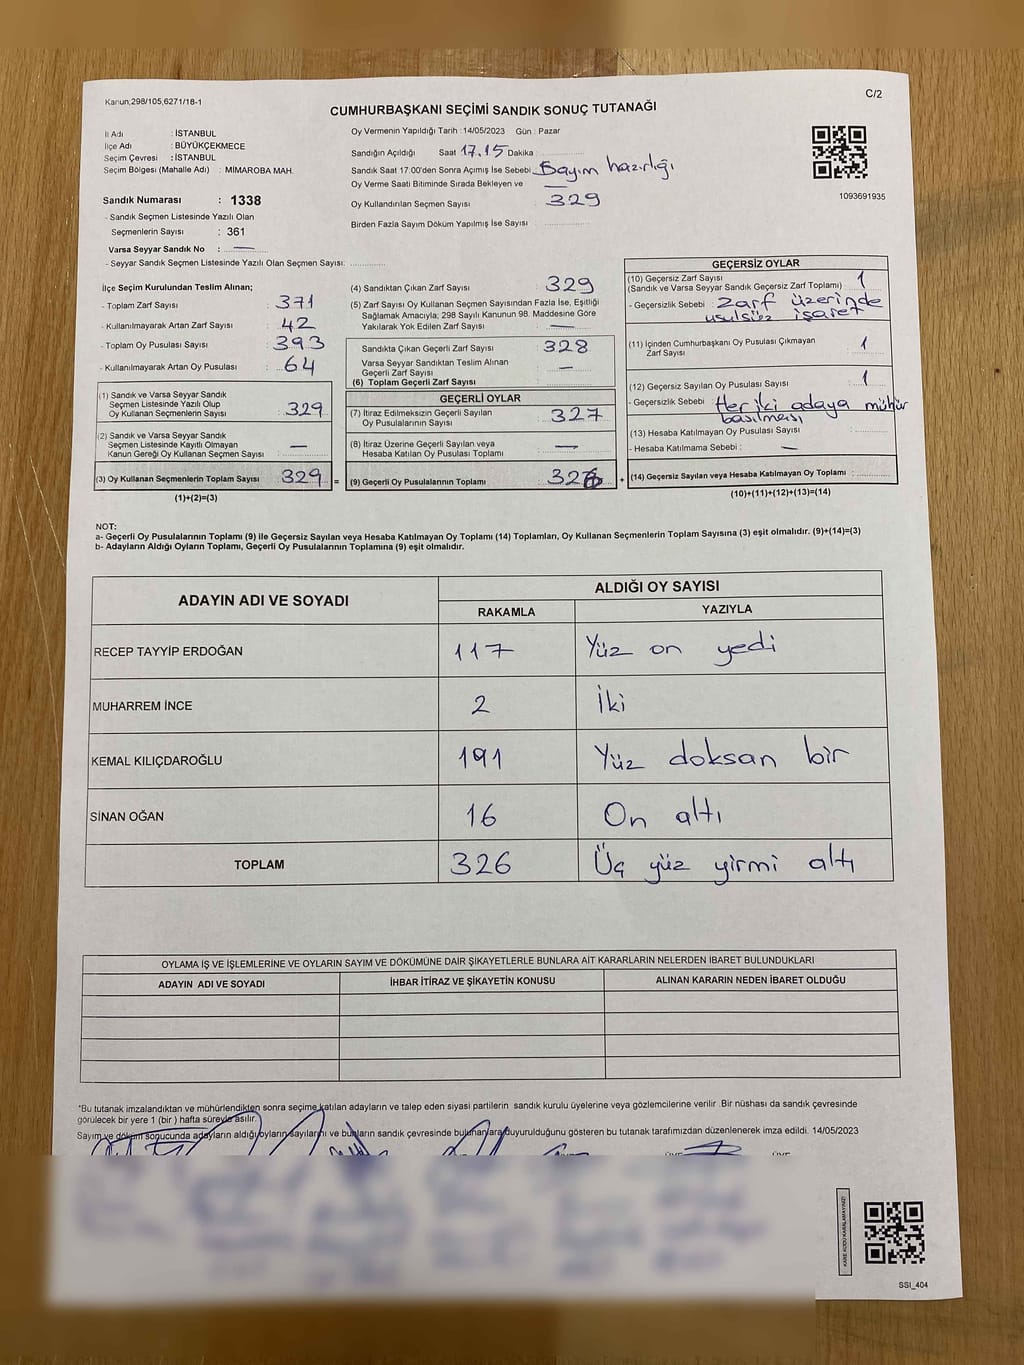 Kanun;298/105,6271/18-1
CUMHURBAŞKANI SEÇİMİ SANDIK SONUÇ TUTANAĞI
C/2
İl Adı : İSTANBUL
İlçe Adı : BÜYÜKÇEKMECE
Seçim Çevresi : İSTANBUL
Seçim Bölgesi (Mahalle Adı) : MİMAROBA MAH.
Oy Vermenin Yapıldığı Tarih : 14/05/2023 Gün : Pazar
Sandığın Açıldığı Saat 17.15 Dakika :
Sandık Saat 17.00'den Sonra Açımış İse Sebebi Sayım hazırlığı
Oy Verme Saati Bitiminde Sırada Bekleyen ve —
Oy Kullandırılan Seçmen Sayısı : 329
Birden Fazla Sayım Döküm Yapılmış İse Sayısı :
1093691935
Sandık Numarası : 1338
- Sandık Seçmen Listesinde Yazılı Olan
Seçmenlerin Sayısı : 361
Varsa Seyyar Sandık No : —
- Seyyar Sandık Seçmen Listesinde Yazılı Olan Seçmen Sayısı:
İlçe Seçim Kurulundan Teslim Alınan;
- Toplam Zarf Sayısı : 371
- Kullanılmayarak Artan Zarf Sayısı : 42
- Toplam Oy Pusulası Sayısı : 393
- Kullanılmayarak Artan Oy Pusulası : 64
(1) Sandık ve Varsa Seyyar Sandık
Seçmen Listesinde Yazılı Olup
Oy Kullanan Seçmenlerin Sayısı : 329
(2) Sandık ve Varsa Seyyar Sandık
Seçmen Listesinde Kayıtlı Olmayan
Kanun Gereği Oy Kullanan Seçmen Sayısı : —
(3) Oy Kullanan Seçmenlerin Toplam Sayısı : 329 =
(1)+(2)=(3)
(4) Sandıktan Çıkan Zarf Sayısı : 329
(5) Zarf Sayısı Oy Kullanan Seçmen Sayısından Fazla İse, Eşitliği
Sağlamak Amacıyla; 298 Sayılı Kanunun 98. Maddesine Göre
Yakılarak Yok Edilen Zarf Sayısı : —
Sandıkta Çıkan Geçerli Zarf Sayısı : 328
Varsa Seyyar Sandıktan Teslim Alınan
Geçerli Zarf Sayısı : —
(6) Toplam Geçerli Zarf Sayısı :
GEÇERLİ OYLAR
(7) İtiraz Edilmeksizin Geçerli Sayılan
Oy Pusulalarının Sayısı : 327
(8) İtiraz Üzerine Geçerli Sayılan veya
Hesaba Katılan Oy Pusulası Toplamı : —
(9) Geçerli Oy Pusulalarının Toplamı : 326 +
GEÇERSİZ OYLAR
(10) Geçersiz Zarf Sayısı : 1
(Sandık ve Varsa Seyyar Sandık Geçersiz Zarf Toplamı)
- Geçersizlik Sebebi : Zarf üzerinde
usulsüz işaret
(11) İçinden Cumhurbaşkanı Oy Pusulası Çıkmayan : 1
Zarf Sayısı
(12) Geçersiz Sayılan Oy Pusulası Sayısı : 1
- Geçersizlik Sebebi : Her iki adaya mühür
basılması
(13) Hesaba Katılmayan Oy Pusulası Sayısı :
- Hesaba Katılmama Sebebi : —
(14) Geçersiz Sayılan veya Hesaba Katılmayan Oy Toplamı :
(10)+(11)+(12)+(13)=(14)
NOT:
a- Geçerli Oy Pusulalarının Toplamı (9) ile Geçersiz Sayılan veya Hesaba Katılmayan Oy Toplamı (14) Toplamları, Oy Kullanan Seçmenlerin Toplam Sayısına (3) eşit olmalıdır. (9)+(14)=(3)
b- Adayların Aldığı Oyların Toplamı, Geçerli Oy Pusulalarının Toplamına (9) eşit olmalıdır.
ADAYIN ADI VE SOYADI
ALDIĞI OY SAYISI
RAKAMLA YAZIYLA
RECEP TAYYİP ERDOĞAN 117 Yüz on yedi
MUHARREM İNCE 2 İki
KEMAL KILIÇDAROĞLU 191 Yüz doksan bir
SİNAN OĞAN 16 On altı
TOPLAM 326 Üç yüz yirmi altı
OYLAMA İŞ VE İŞLEMLERİNE VE OYLARIN SAYIM VE DÖKÜMÜNE DAİR ŞİKAYETLERLE BUNLARA AİT KARARLARIN NELERDEN İBARET BULUNDUKLARI
ADAYIN ADI VE SOYADI İHBAR İTİRAZ VE ŞİKAYETİN KONUSU ALINAN KARARIN NEDEN İBARET OLDUĞU
*Bu tutanak imzalandıktan ve mühürlendikten sonra seçime katılan adayların ve talep eden siyasi partilerin sandık kurulu üyelerine veya gözlemcilerine verilir .Bir nüshası da sandık çevresinde
görülecek bir yere 1 (bir ) hafta süreyle asılır.
Sayım ve döküm sonucunda adayların aldığı oyların sayılarını ve bunların sandık çevresinde bulunanlara duyurulduğunu gösteren bu tutanak tarafımızdan düzenlenerek imza edildi. 14/05/2023
KARE KODU KARALAMAYINIZ!
SSI_404